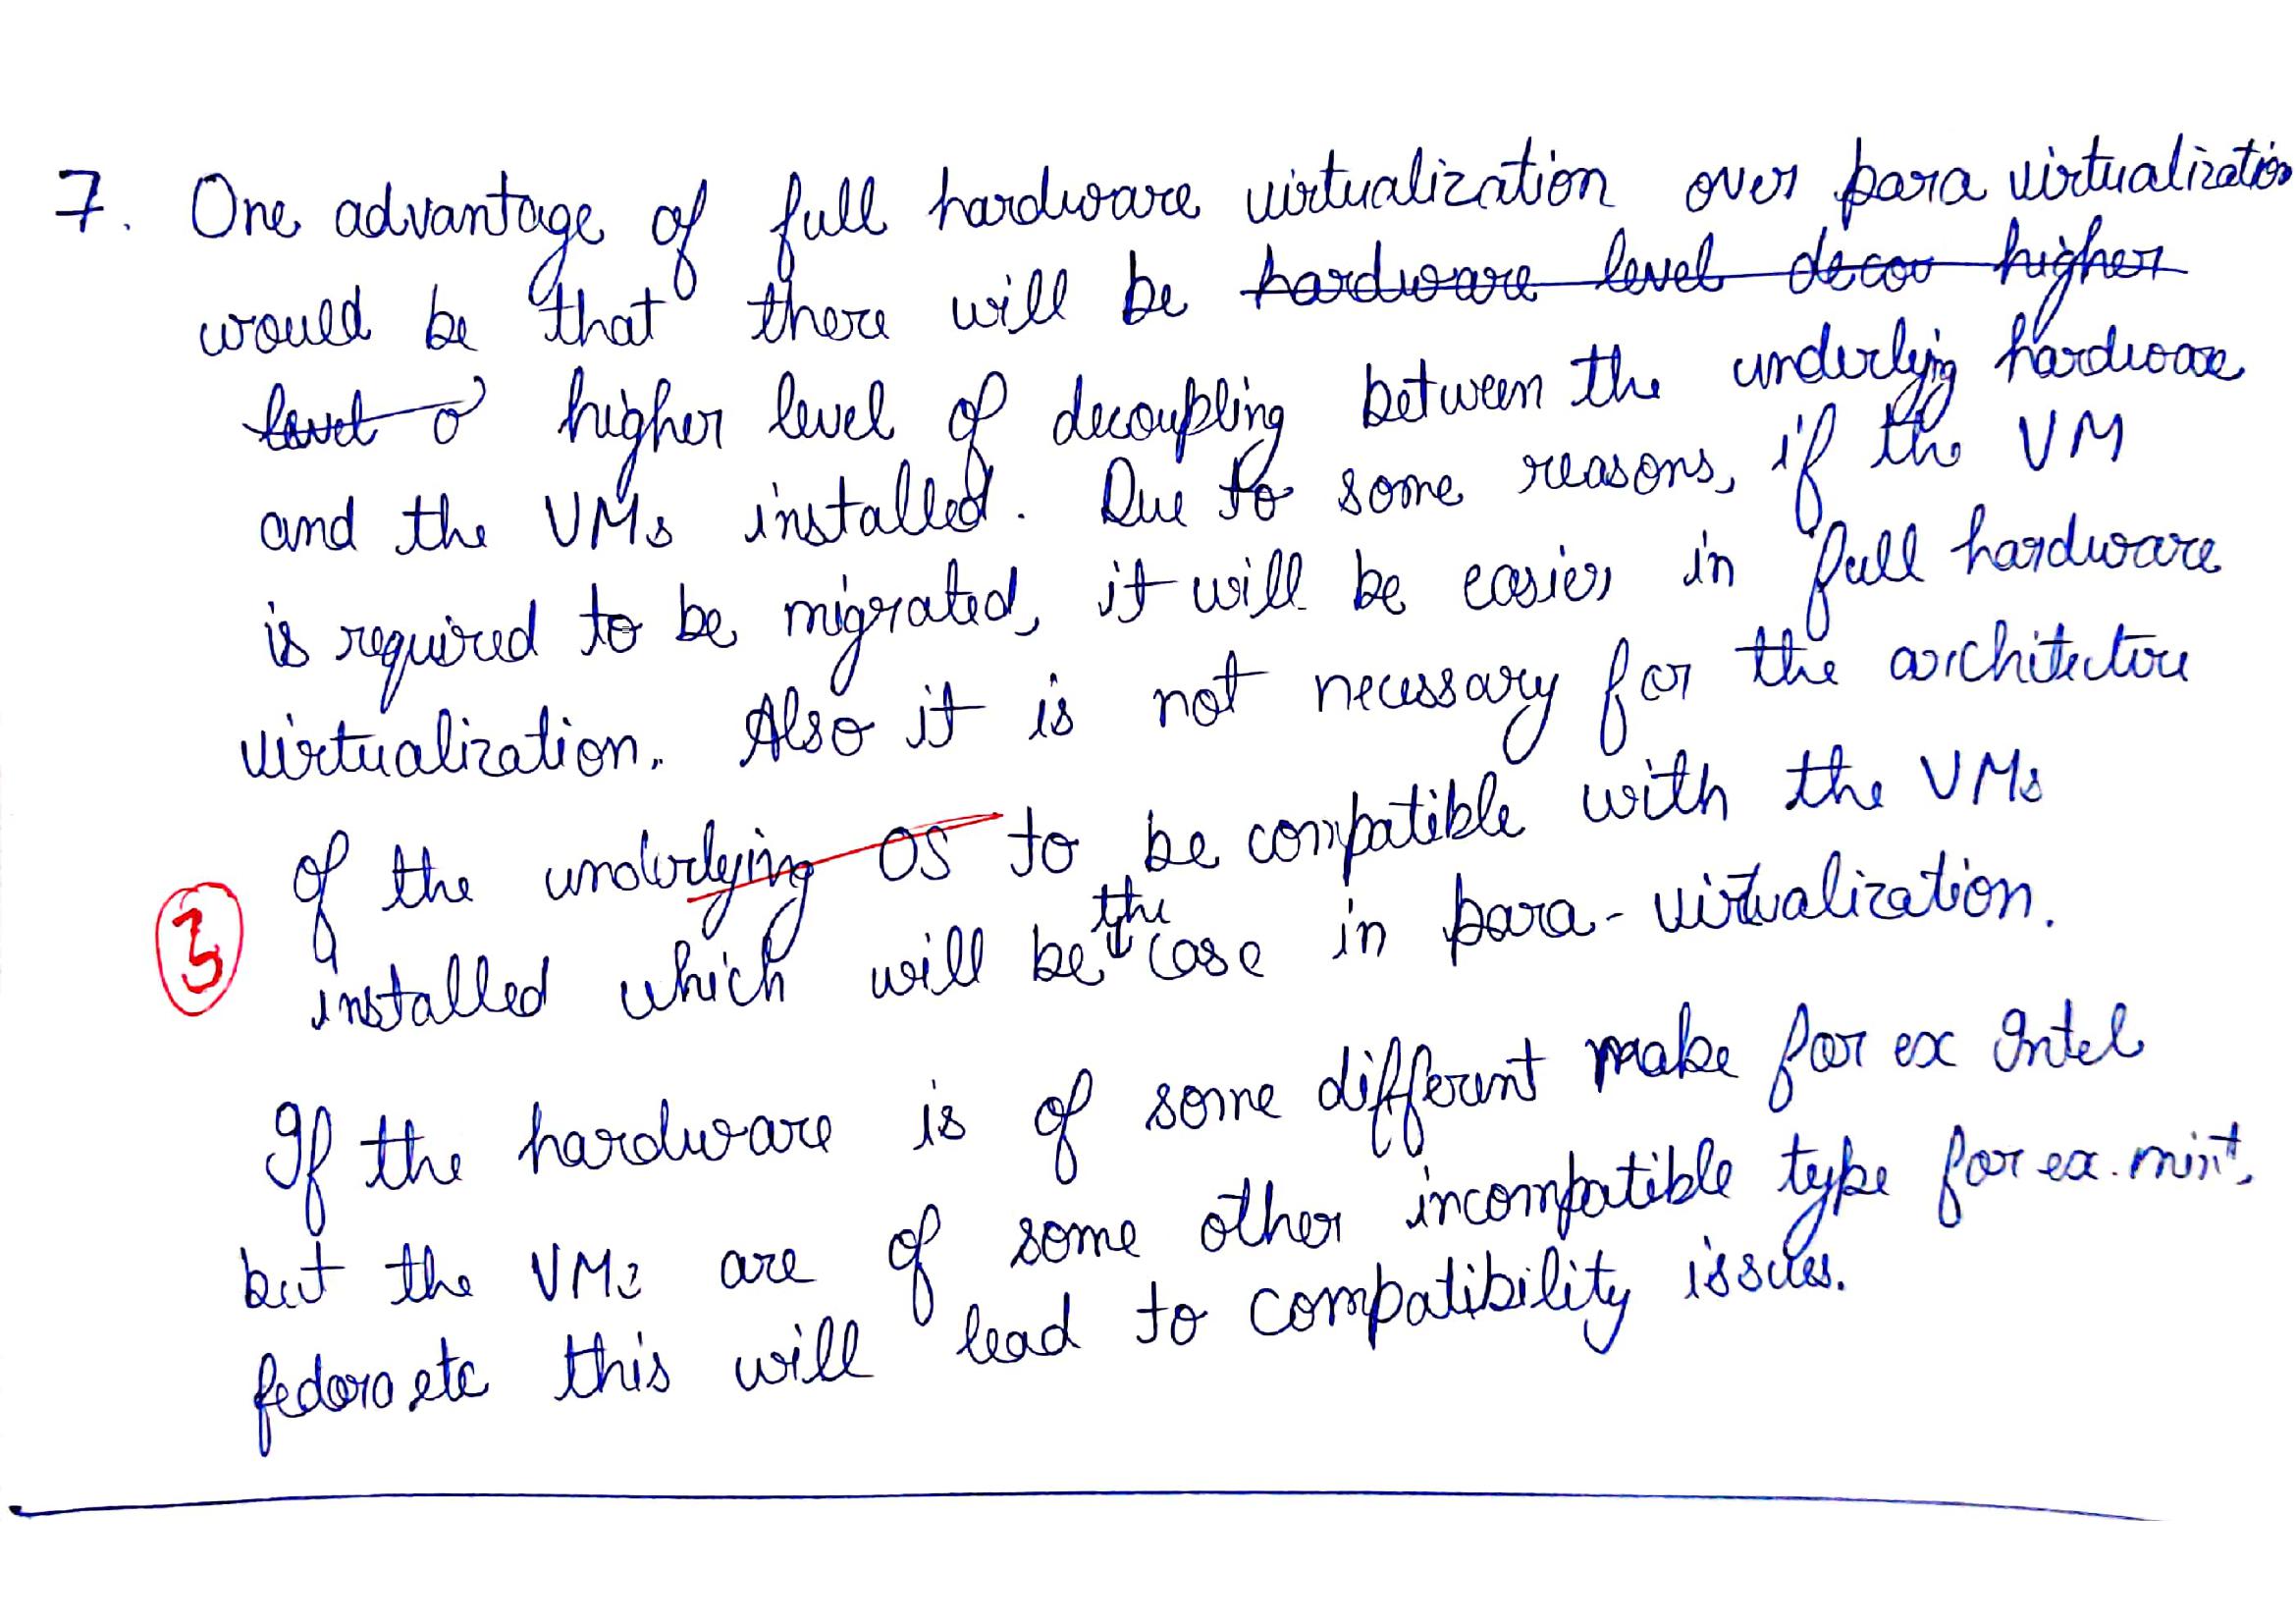 7. One advantage of full hardware virtualization over para virtualization
would be that there will be hardware level decou higher
level o higher level of decoupling between the underlyig hardware
and the VMs installed. Due to some reasons, if the VM
is required to be migrated, it will be easier in full hardware
virtualization. Also it is not necessary for the architecture
of the underlying OS to be compatible with the VMs
installed which will be the case in para-virtualization.
3
If the hardware is of some different make for ex Intel
but the VMs are of some other incompatible type for ex. mint,
fedora etc this will lead to compatibility issues.